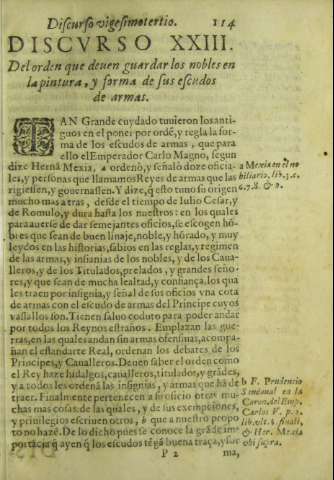 Discurso vigesimotertio. 114
DISCVRSO XXIII.
Del orden que deuen guardar los nobles en
la pintura, y forma de sus escudos
de armas.
TAN Grande cuydado tuuieron los anti-
guos en el poner por ordē, y regla la for-
ma de los escudos de armas, que para
ello el Emperador Carlo Magno, segun
dize Hernā Mexia, a ordenò, y señalò doze oficia-
les, y personas que llamamos Reyes de armas que las
rigiessen, y gouernassen. Y dize, q̄ esto tuuo su origen
mucho mas atras, desde el tiempo de Iulio Cesar, y
de Romulo, y dura hasta los nuestros: en los quales
para auerse de dar semejantes oficios, se escogen hō-
bres que sean de buen linaje, noble, y hōrado, y muy
leydos en las historias, sabios en las reglas, y regimen
de las armas, y insanias de los nobles, y de los Caua-
lleros, y de los Titulados, prelados, y grandes seño-
res, y que sean de mucha lealtad, y confiança, los qua
les traen por insignia, y señal de sus oficios vna cota
de armas con el escudo de armas del Principe cuyos
vasallos son. Tienen saluo conduto para poder andar
por todos los Reynos estraños. Emplazan las gue-
rras, en las quales andan sin armas ofensiuas, acompa-
ñan el estandarte Real, ordenan los debates de los
Principes, y Caualleros. Deuen saber el orden como
el Rey haze hidalgos, caualleros, titulados, y grādes,
y a todos les ordenā las insignias, y armas que hā de
traer. Finalmente pertenecen a su oficio otras mu-
chas mas cosas: de las quales, y de sus exempsiones,
y priuilegios escriuen otros, b que a nuestro propo
to no haze. De lo dicho pues se conoce la grāde im-
portācia q̄ ayen q̄ los escudos tēgā buena traça, y for
P 2 ma,
a Mexia en el no
biliario, lib. 3. c.
6. 7. 8. &
b F. Prudencio
Sandoual en la
Coron. del Emp.
Carlos V. p. 2.
lib. vlt. §. finali,
& Her. Mexia
vbi supra.